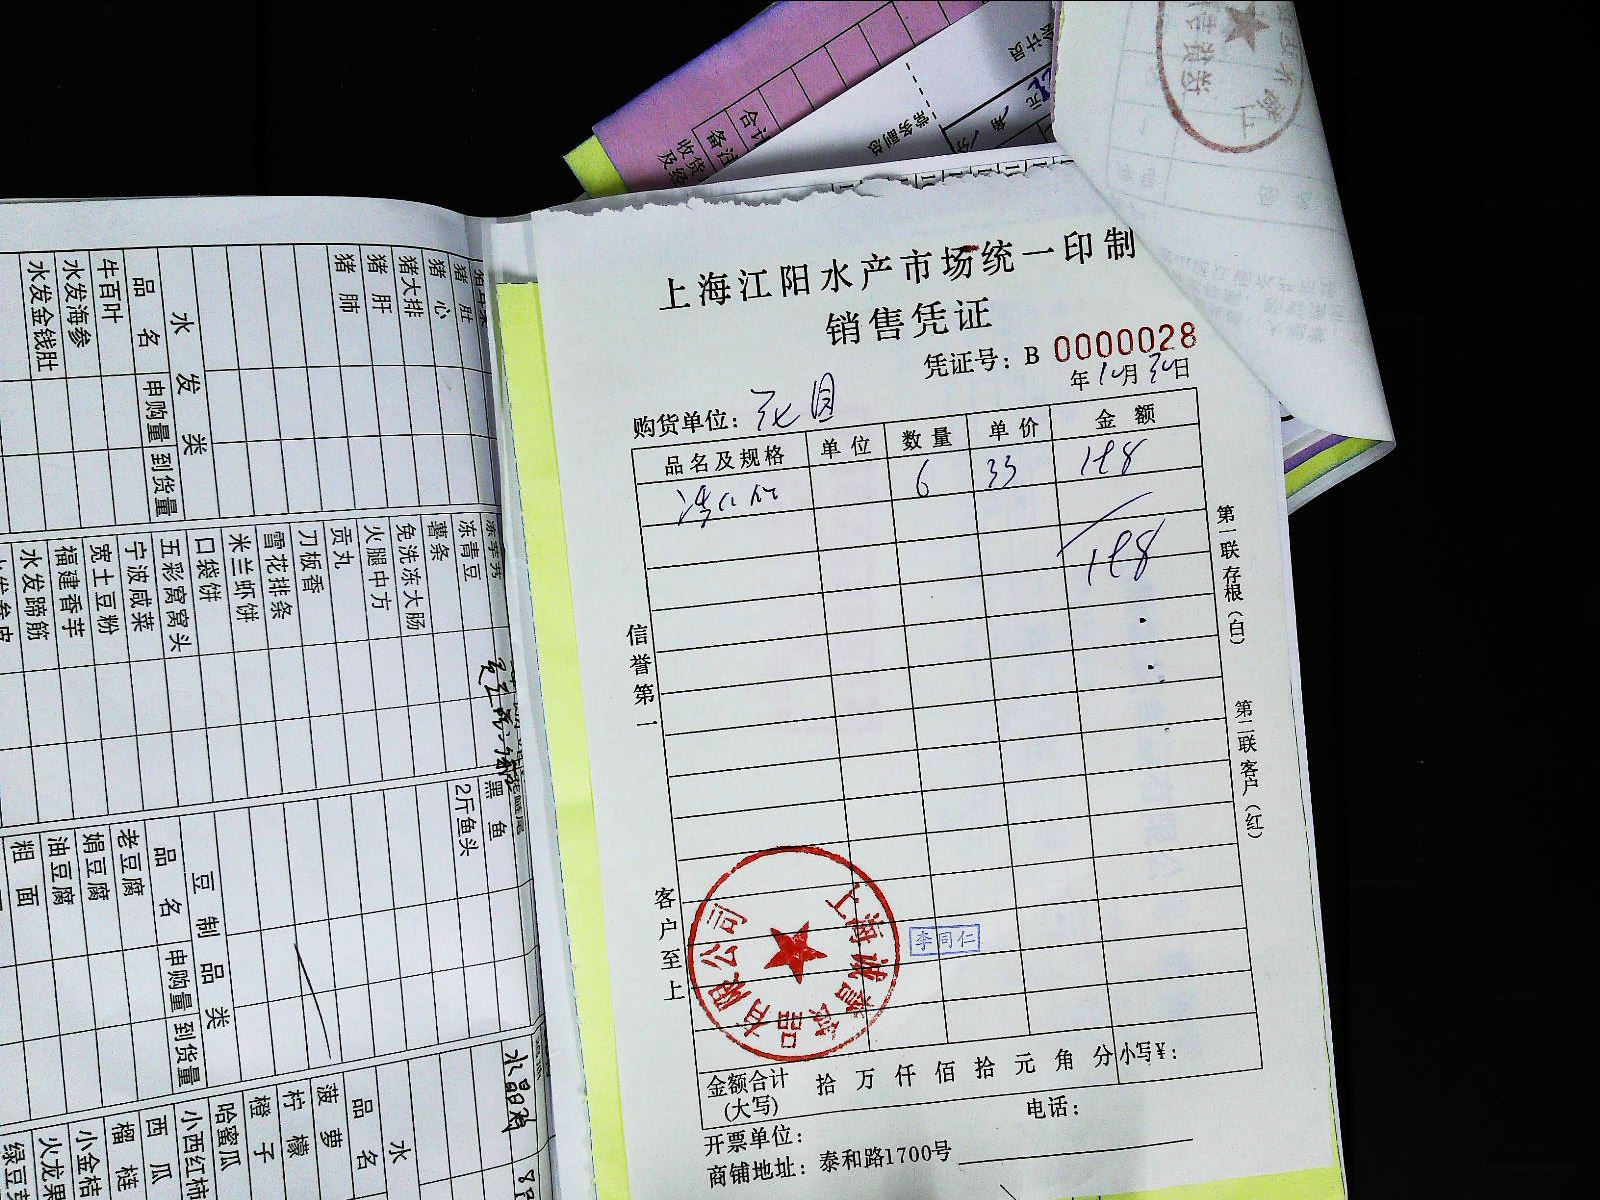 上海江阳水产市场统一印制
销售凭证
凭证号：B 0000028
年12月30日
购货单位：
品名及规格 单位 数量 单价 金额
6 33 198
198
信誉第一
客户至上
第一联存根（白）
第二联客户（红）
上海诚 食品有限公司
李同仁
金额合计（大写） 拾 万 仟 佰 拾 元 角 分 小写¥：
电话：
开票单位：
商铺地址：泰和路1700号
合计
备注
收货
及经
常务副总
会计员
猪胜
猪心
猪大排
猪肝
猪肺
水发类
品名 申购量 到货量
牛百叶
水发海参
水发金钱肚
冻青豆
薯条
免洗冻大肠
火腿中方
贡丸
刀板香
雪花排条
米兰虾饼
口袋饼
五彩窝窝头
宁波咸菜
宽土豆粉
福建香芋
水发蹄筋
黑鱼
2斤鱼头
豆制品类
品名 申购量 到货量
老豆腐
娟豆腐
油豆腐
粗面
水
品名
菠萝
柠檬
橙子
哈蜜瓜
小西红柿
西瓜
榴梿
小金桔
火龙果